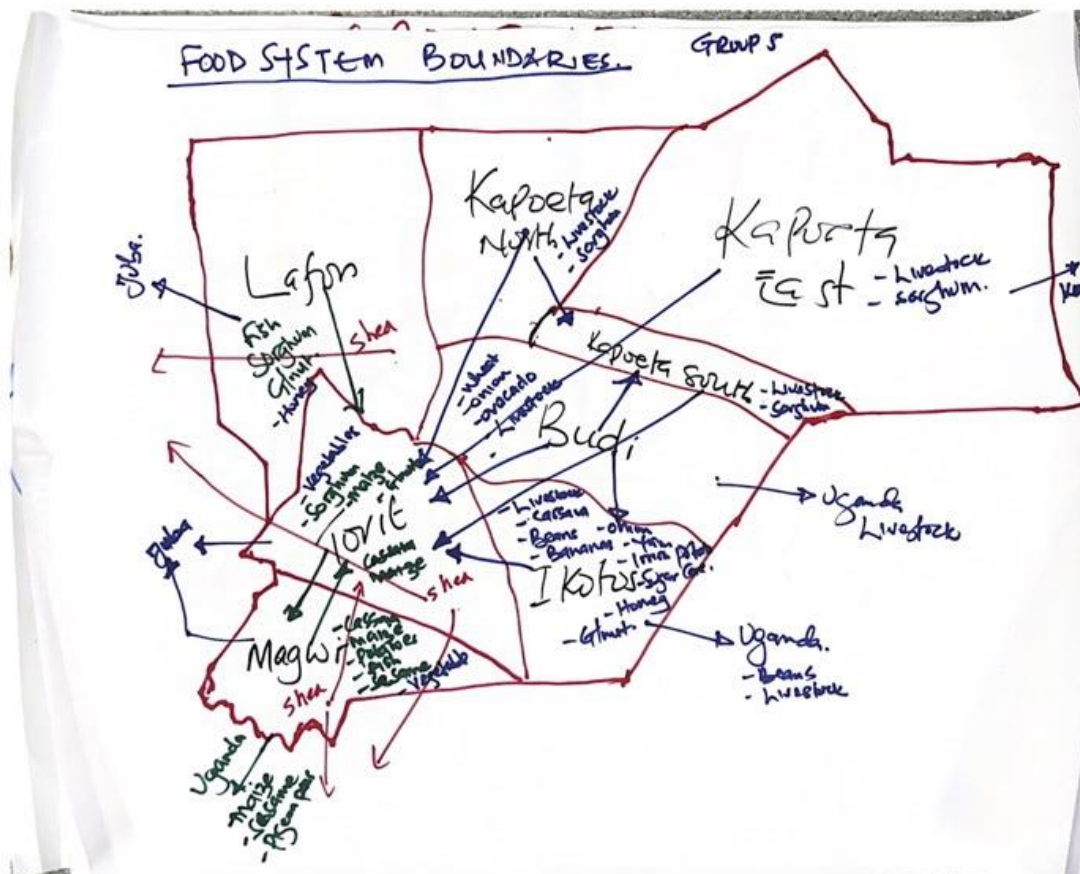 FOOD SYSTEM BOUNDARIES.
GROUP 5
Kapoeta
North
- Livestock
- Sorghum
Kapoeta
East
- Livestock
- Sorghum.
Juba.
Lafon
Fish
Sorghum
G/nut.
- Honey
shea
Kapoeta South
- Livestock
- Sorghum
- Wheat
- Onion
- ovacado
- Livestock
Budi
Uganda
Livestock
- Vegetables
- Sorghum
- maize
Torit
Cassava
Maize
shea
Juba
- Livestock
- Cassava
- Beans
- Bananas
- Onion
- Yam
Ikotos
- Honey
- G/nut.
Uganda.
- Beans
- Livestock
Magwi
- Cassava
- Maize
- Potatoes
- Fish
- Sesame
- Vegetable
shea
Uganda
- Maize
- Sesame